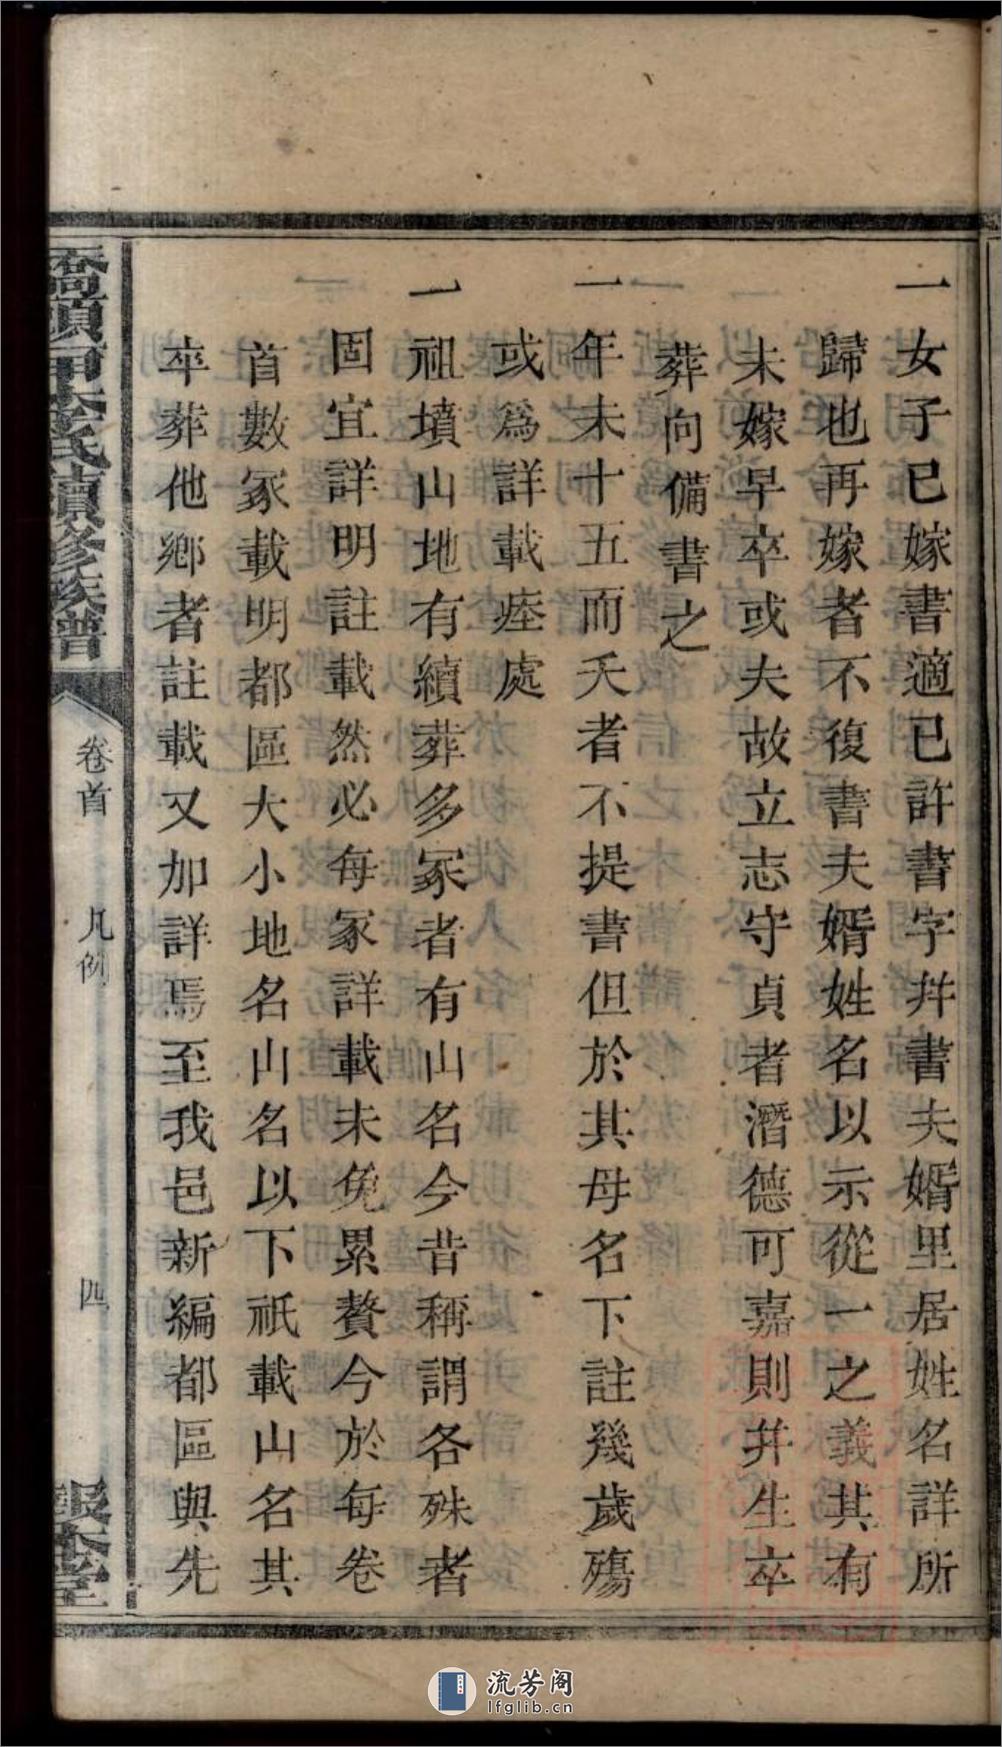 一女子已嫁書適已許書字并書夫婿里居姓名詳所
歸也再嫁者不復書夫婿姓名以示從一之義其有
未嫁早卒或夫故立志守貞者潛德可嘉則并生卒
葬向備書之
一年未十五而夭者不提書但於其母名下註幾歲殤
或爲詳載瘞處
一祖墳山地有續葬多冢者有山名今昔稱謂各殊者
固宜詳明註載然必每冢詳載未免累贅今於每卷
首數冢載明都區大小地名山名以下祇載山名其
卒葬他鄉者註載又加詳焉至我邑新編都區與先
李氏續修族譜
卷首
凡例
四
報本堂
流芳阁
lfglib.cn